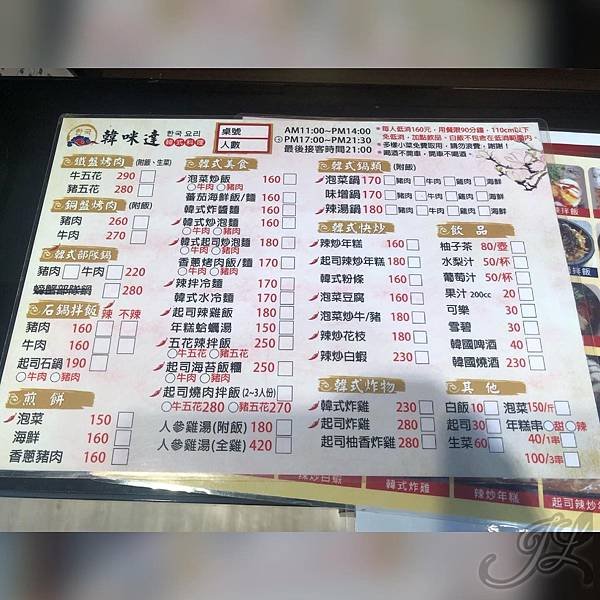 한국
韓味達
한국 요리
韓式料理
桌號
人數
AM11:00~PM14:00
PM17:00~PM21:30
最後接客時間21:00
*每人低消160元，用餐限90分鐘，110cm以下
免低消，加點飲品、白飯不包含在低消範圍內。
*多樣小菜免費取用，請勿浪費，謝謝！
*喝酒不開車，開車不喝酒
鐵盤烤肉(附飯、生菜)
牛五花 290
豬五花 280
銅盤烤肉(附飯)
豬肉 260
牛肉 270
韓式部隊鍋
豬肉 牛肉 220
螃蟹部隊鍋 280
石鍋拌飯 辣 不辣
豬肉 160
牛肉 160
起司石鍋 190
○牛肉 ○豬肉
煎餅
泡菜 150
海鮮 160
香蔥豬肉 160
韓式美食
泡菜炒飯 160
○牛肉 ○豬肉
蕃茄海鮮飯/麵 160
韓式炸醬麵 160
韓式炒泡麵 160
○牛肉 ○豬肉
韓式起司炒泡麵 180
○牛肉 ○豬肉
香蔥烤肉飯/麵 160
辣拌冷麵 170
韓式水冷麵 170
起司辣雞飯 180
年糕蛤蠣湯 150
五花辣拌飯 250
○牛五花 ○豬五花
起司海苔飯糰 250
○牛肉 ○豬肉
起司燒肉拌飯(2~3人份)
○牛五花280 ○豬五花270
人參雞湯(附飯) 180
人參雞湯(全雞) 420
韓式鍋類(附飯)
泡菜鍋170 豬肉 牛肉 雞肉 海鮮
味增鍋170 豬肉 牛肉 雞肉 海鮮
辣湯鍋180 豬肉 牛肉 雞肉 海鮮
韓式快炒
辣炒年糕 160
起司辣炒年糕 180
韓式粉條 160
泡菜豆腐 160
泡菜炒牛/豬 180
辣炒花枝 180
辣炒白蝦 230
飲品
柚子茶 80/壺
水梨汁 50/杯
葡萄汁 50/杯
果汁200cc 20
可樂 30
雪碧 30
韓國啤酒 40
韓國燒酒 230
韓式炸物
韓式炸雞 230
起司炸雞 280
起司柚香炸雞 280
其他
白飯10 泡菜150/斤
起司30 年糕串○甜○辣
生菜60 40/1串
100/3串
辣炒白蝦
韓式炸雞
辣炒年糕
JL